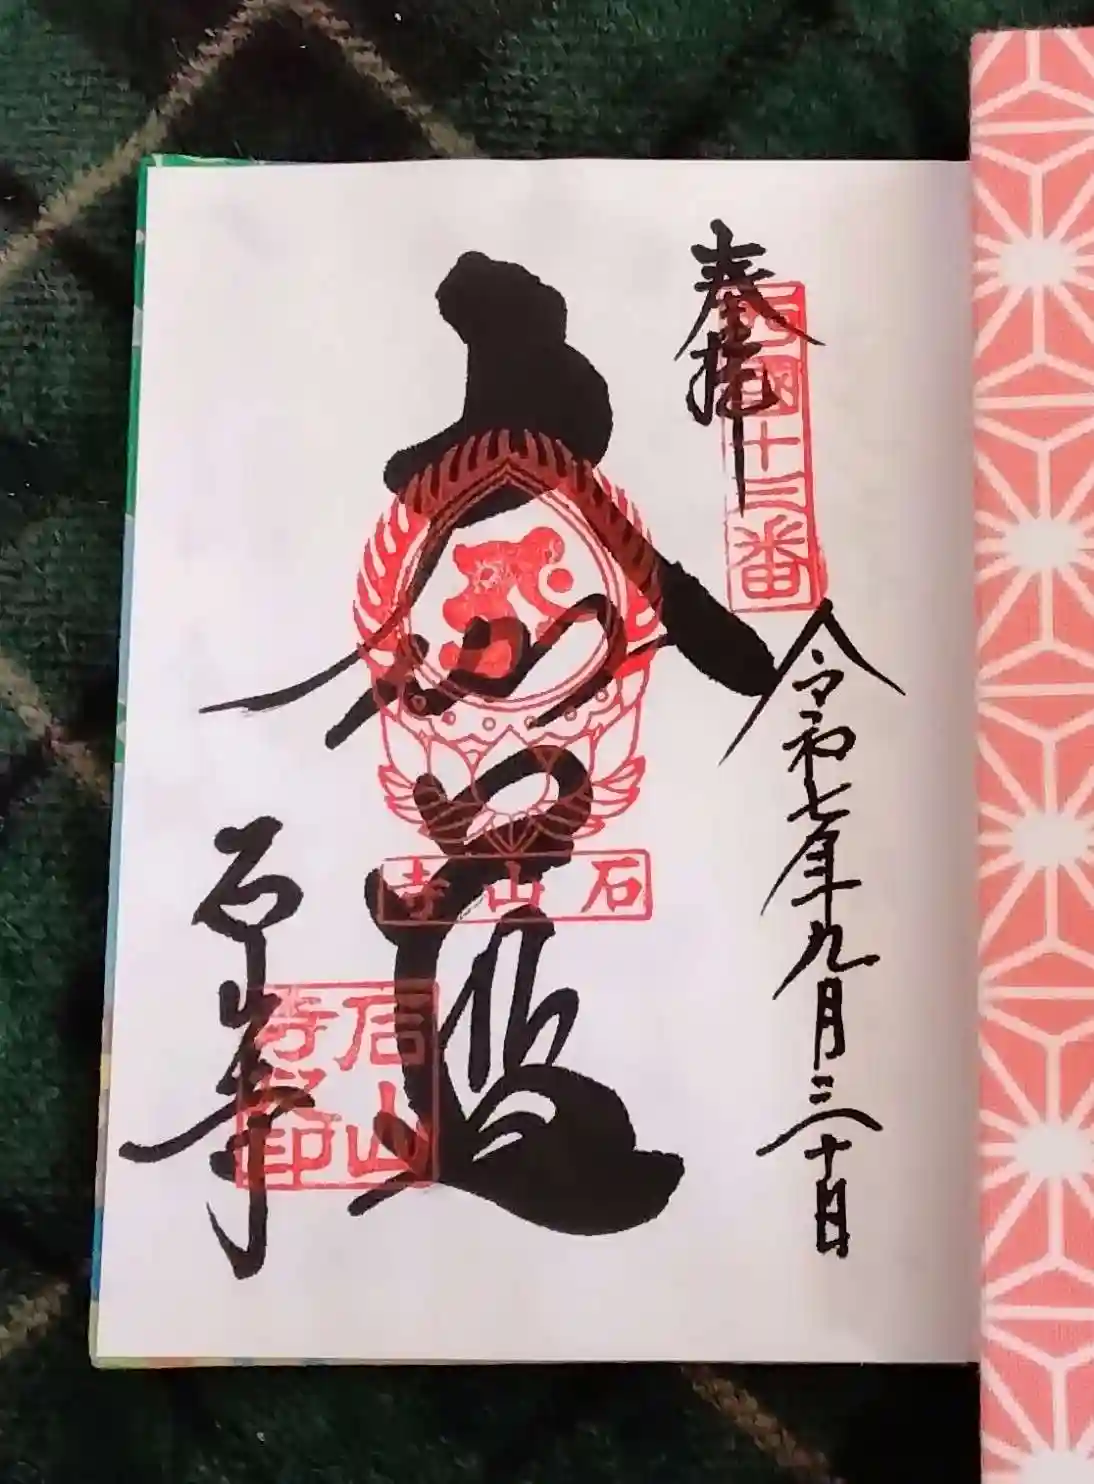 奉拝
西國十三番
令和七年九月三十日
石山寺
石山寺
石山寺印